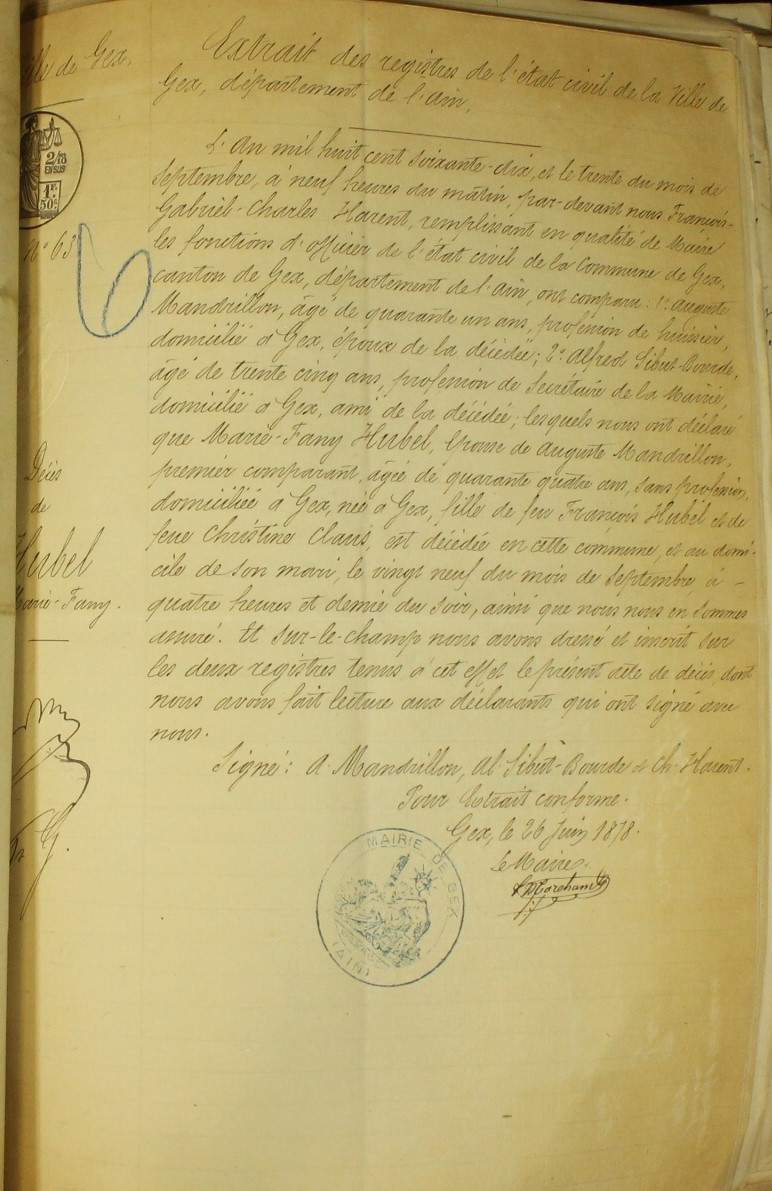 Ville de Gex.
2/10
EN SUS
1F
50c
N° 63
Décès
de
Hubel
Marie-Fany.
G.
Extrait des registres de l'état civil de la Ville de
Gex, département de l'ain.
L'An mil huit cent soixante-dix, et le trente du mois de
Septembre, à neuf heures du matin, par-devant nous François-
Gabriel-Charles Harent, remplissant en qualité de Maire
les fonctions d'officier de l'état civil de la Commune de Gex,
canton de Gex, département de l'ain, ont comparu: 1° auguste
Mandrillon, âgé de quarante un ans, profession de huissier,
domicilié à Gex, époux de la décédée; 2° Alfred Sibut-Bourde,
âgé de trente cinq ans, profession de Secrétaire de la Mairie,
domicilié à Gex, ami de la décédée; lesquels nous ont déclaré
que Marie-Fany Hubel, épouse de auguste Mandrillon,
premier comparant, âgée de quarante quatre ans, sans profession,
domiciliée à Gex, née à Gex, fille de feu François Hubel et de
feue Christine Claris, est décédée en cette commune, et au domi-
cile de son mari, le vingt neuf du mois de septembre, à -
quatre heures et demie du soir, ainsi que nous nous en sommes
assuré. Et sur-le-champ nous avons dressé et inscrit sur
les deux registres tenus à cet effet le présent acte de décès, dont
nous avons fait lecture aux déclarants qui ont signé avec
nous.
Signé: A. Mandrillon, Al. Sibut-Bourde et Ch. Harent.
Pour Extrait conforme.
Gex, le 26 Juin 1878.
Le Maire.
MAIRIE DE GEX
(AIN)